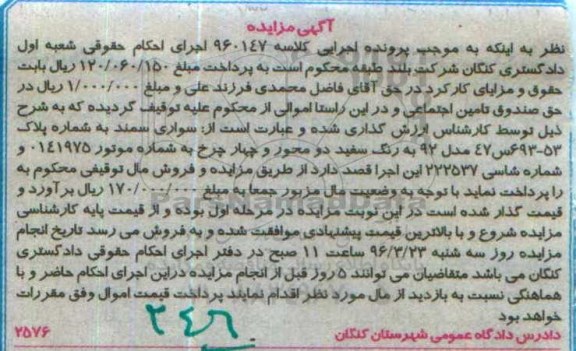 آگهی مزایده
نظر به اینکه به موجب پرونده اجرایی کلاسه ۹۶۰۱۴۷ اجرای احکام حقوقی شعبه اول
دادگستری کنگان شرکت بلند طبقه محکوم است به پرداخت مبلغ ۱۲۰/۰۶۰/۱۵۰ ریال بابت
حقوق و مزایای کارکرد در حق آقای فاضل محمدی فرزند علی و مبلغ ۱/۰۰۰/۰۰۰ ریال در
حق صندوق تامین اجتماعی و در این راستا اموالی از محکوم علیه توقیف گردیده که به شرح
ذیل توسط کارشناس ارزش گذاری شده و عبارت است از: سواری سمند به شماره پلاک
۵۳-۶۹۳س۴۷ مدل ۹۲ به رنگ سفید دو محور و چهار چرخ به شماره موتور ۰۱۴۱۹۷۵ و
شماره شاسی ۲۲۲۵۳۷ این اجرا قصد دارد از طریق مزایده و فروش مال توقیفی محکوم به
را پرداخت نماید با توجه به وضعیت مال مزبور جمعا به مبلغ ۱۷۰/۰۰۰/۰۰۰ ریال برآورد و
قیمت گذار شده است در این نوبت مزایده در مرحله اول بوده و از قیمت پایه کارشناسی
مزایده شروع و با بالاترین قیمت پیشنهادی موافقت شده و به فروش می رسد تاریخ انجام
مزایده روز سه شنبه ۹۶/۳/۲۳ ساعت ۱۱ صبح در دفتر اجرای احکام حقوقی دادگستری
کنگان می باشد متقاضیان می توانند ۵ روز قبل از انجام مزایده دراین اجرای احکام حاضر و با
هماهنگی نسبت به بازدید از مال مورد نظر اقدام نمایند پرداخت قیمت اموال وفق مقررات
خواهد بود
دادرس دادگاه عمومی شهرستان کنگان
۲۵۷۶
ParsNamadData